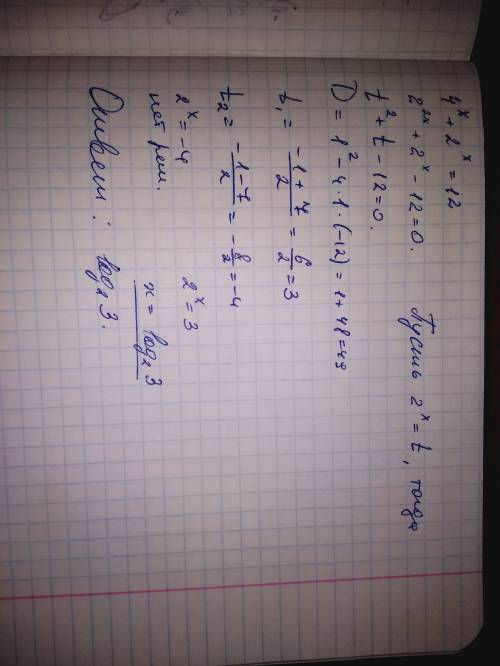 4^x + 2^x = 12
2^{2x} + 2^x - 12 = 0. Пусть 2^x = t, тогда
t^2 + t - 12 = 0.
D = 1^2 - 4 · 1 · (-12) = 1 + 48 = 49
t_1 = \frac{-1+7}{2} = \frac{6}{2} = 3
t_2 = \frac{-1-7}{2} = -\frac{8}{2} = -4
2^x = -4 2^x = 3
нет реш. x = log_2 3
Ответ: log_2 3.